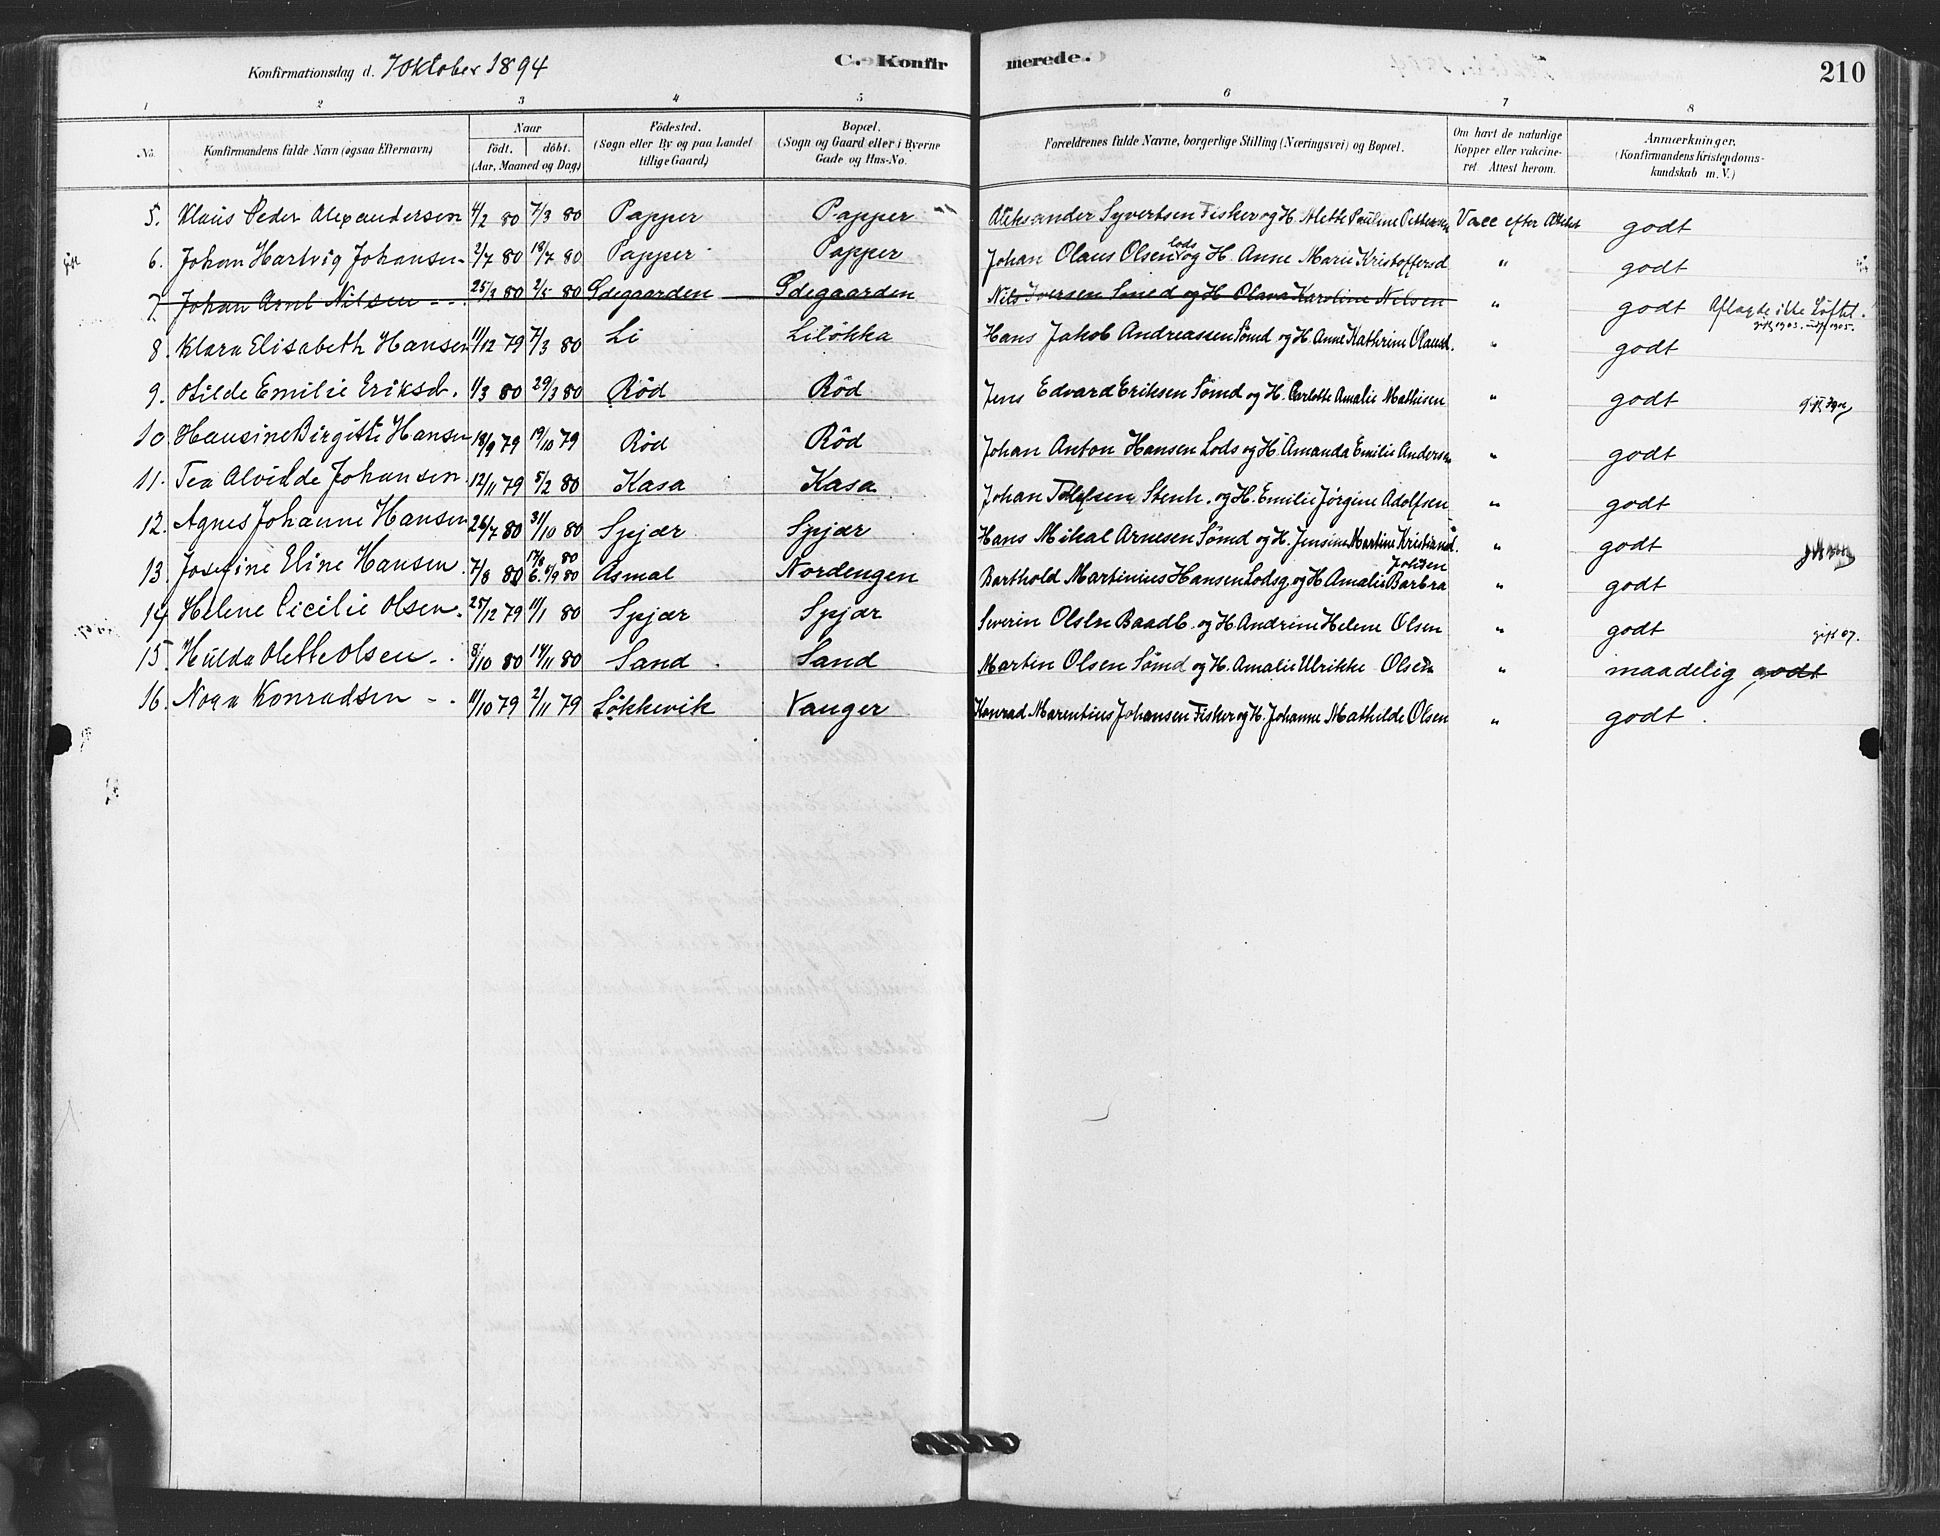 Konfirmationsdag d. 7 Oktober 1894 C. Konfirmerede. 210
1 2 3 4 5 6 7 8
No. Konfirmandens fulde Navn (ogsaa Efternavn) Naar födt. döbt. (Aar, Maaned og Dag) Födested. (Sogn eller By og paa Landet tillige Gaard) Bopæl. (Sogn og Gaard eller i Byerne Gade og Hus-No. Forældrenes fulde Navne, borgerlige Stilling (Næringsvei) og Bopæl. Om havt de naturlige Kopper eller vakcineret. Attest herom. Anmærkninger. (Konfirmandens Kristendomskundskab m. V.)
5. Klaus Peder Alexandersen 4/2 80 7/3 80 Papper Papper Aleksander Syvertsen Fisker og H. Mette Pauline Pettersen Vacc efter Attest godt
6. Johan Hartvig Johansen 2/7 80 18/7 80 Papper Papper Johan Olaus Olsen Lods og H. Anne Marie Kristoffersd " godt
7. Johan Nilsen 25/3 80 2/5 80 Ödegaarden Ödegaarden Nils Iversen Smed og H. Olava Karoline Nilsen " godt Aflagde ikke Löftet.
8. Klara Elisabeth Hansen 11/12 79 7/3 80 Li Lilökka Hans Jakob Andreassen Sömd og H. Anne Kathrine Olausd. " godt
9. Otilde Emilie Eriksd. 1/3 80 29/3 80 Röd Röd Jens Edvard Eriksen Sömd og H. Amalie Mathisen " godt
10 Hansine Birgitte Hansen 18/9 79 19/10 79 Röd Röd Johan Anton Hansen Lods og H. Amanda Emilie Andersen " godt
11. Tea Alvilde Johansen 12/11 79 5/2 80 Kasa Kasa Johan Stenh. og H. Emilie Jörgine Adolfsen " godt
12. Agnes Johanne Hansen 26/7 80 31/10 80 Spjær Spjær Hans Mikal Arnesen Sömd og H. Jensine Martine Kristiansd. " godt
13. Josefine Eline Hansen 7/8 80 6. 5/9 80 Asmal Nordengen Barthold Martinius Hansen Lods og H. Amalie Barbra " godt
14 Helene Cicilie Olsen. 25/12 79 11/1 80 Spjær Spjær Severin Olsen Baadb. og H. Andrine Helene Olsen " godt gift 07.
15. Hulda Olette Olsen 8/10 80 14/11 80 Sand Sand Martin Olsen Sömd og H. Amalie Ulrikke Olsen " maadelig godt
16. Nora Konradsen 11/10 79 2/11 79 Lökkevik Vauger Konrad Marentius Johansen Fisker og H. Johanne Mathilde Olsen " godt